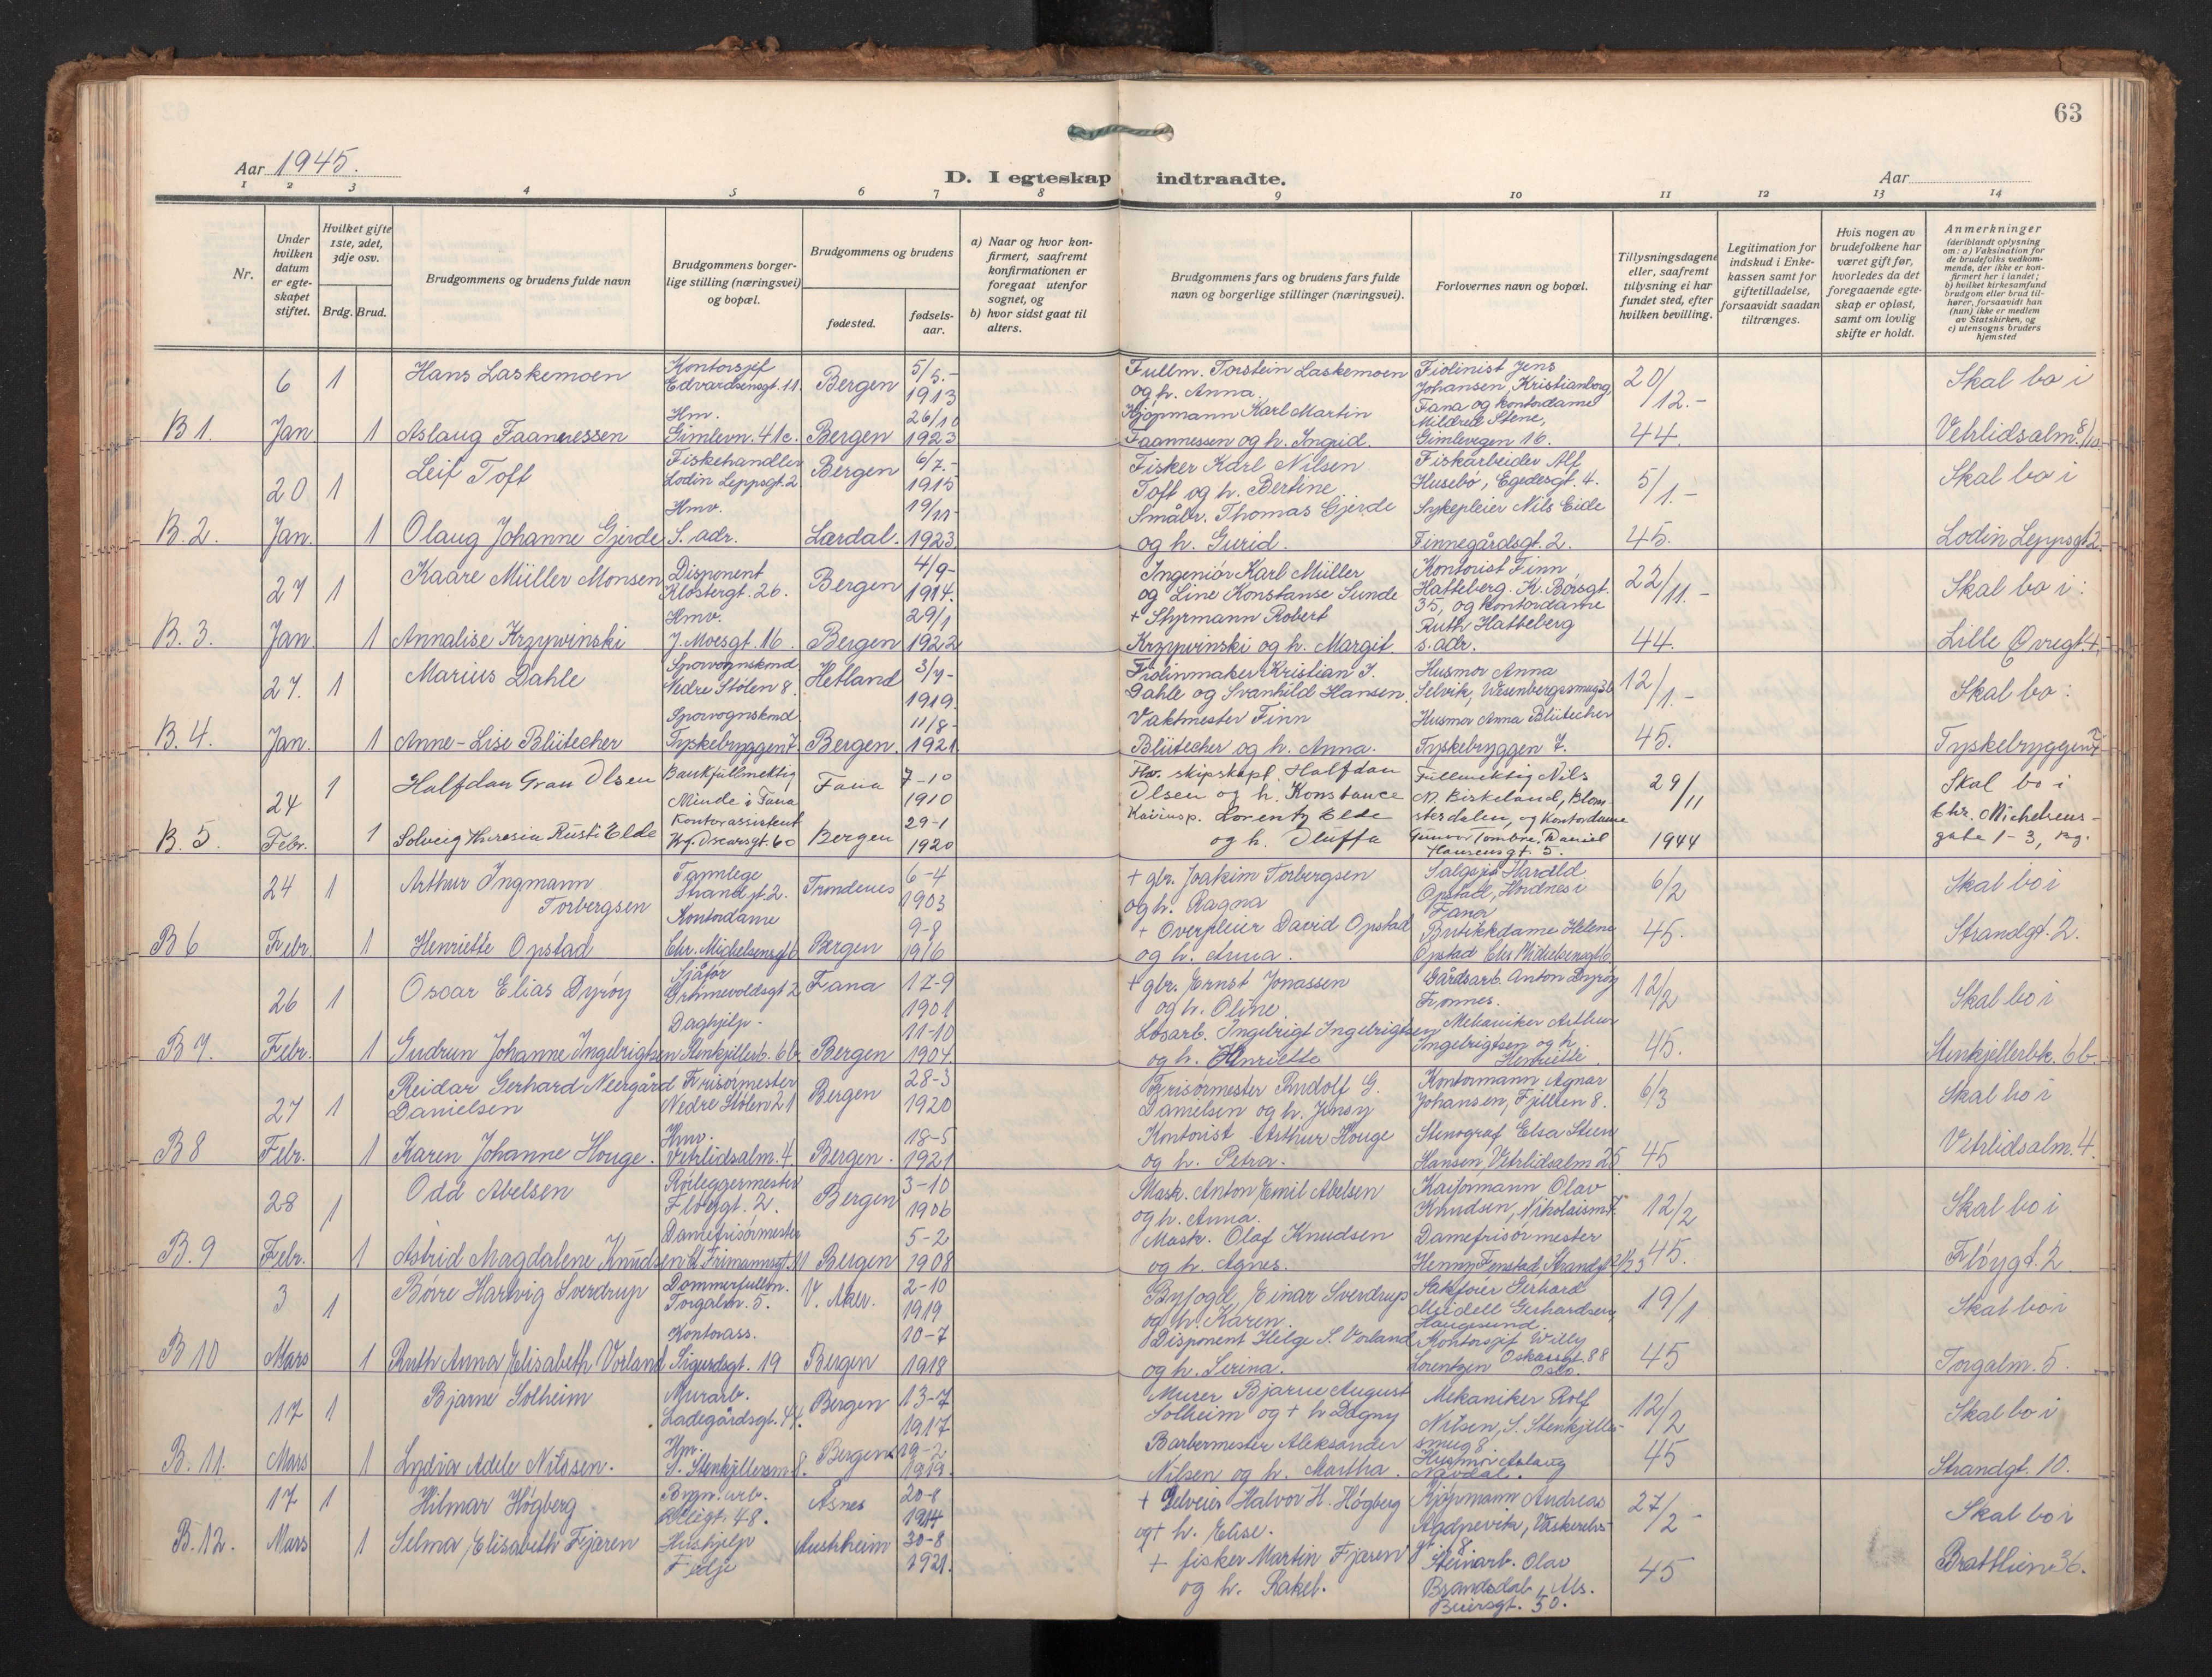 63
Aar 1945.
D. I egteskap indtraadte.
Aar
1 2 3 4 5 6 7 8 9 10 11 12 13 14
Nr.
Under hvilken datum er egteskapet stiftet.
Hvilket gifte 1ste, 2det, 3dje osv.
Brdg. Brud.
Brudgommens og brudens fulde navn
Brudgommens borgerlige stilling (næringsvei) og bopæl.
Brudgommens og brudens
fødested.
fødselsaar.
a) Naar og hvor konfirmert, saafremt konfirmationen er foregaat utenfor sognet, og
b) hvor sidst gaat til alters.
Brudgommens fars og brudens fars fulde navn og borgerlige stillinger (næringsvei).
Forlovernes navn og bopæl.
Tillysningsdagene eller, saafremt tillysning ei har fundet sted, efter hvilken bevilling.
Legitimation for indskud i Enkekassen samt for giftetilladelse, forsaavidt saadan tiltrænges.
Hvis nogen av brudefolkene har været gift før, hvorledes da det foregaaende egteskap er opløst, samt om lovlig skifte er holdt.
Anmerkninger
(deriblandt oplysning om: a) Vaksination for de brudefolks vedkommende, der ikke er konfirmert her i landet;
b) hvilket kirkesamfund brudgom eller brud tilhører, forsaavidt han (hun) ikke er medlem av Statskirken, og
c) utensogns bruders hjemsted
6 1 Hans Laskemoen Kontorsjef Edvardsensgt. 11. Bergen 5/5.- 1913
Fullm. Torstein Laskemoen og h. Anna. Fiolinist Jens Johansen, Kristianborg, Fana og kontordame 20/12.- Skal bo i
B 1. Jan 1 Aslaug Faannessen Hm. Gimlevn. 41c. Bergen 26/10 1923
Kjøpmann Karl Martin Faannessen og h. Ingrid. Mildred Stene, Gimlevegen 16. 44. Vetrlidsalm. 8/10.
20 1 Leif Toft Fiskehandler Lodin Leppsgt. 2 Bergen 6/7.- 1915
Fisker Karl Nilsen Toft og h. Bertine Fiskarbeider Alf Husebø, Egedesgt. 4. 5/1.- Skal bo i
B. 2. Jan. 1 Olaug Johanne Gjerde Hmv. S. adr. Lærdal. 19/11- 1923.
Småbr. Thomas Gjerde og h. Gurid. Sykepleier Nils Eide Finnegårdsgt. 2. 45. Lodin Leppsgt 2.
27 1 Kaare Müller Monsen Disponent Klostergt. 26. Bergen 4/9- 1914.
Ingeniør Karl Müller og Line Konstanse Sunde Kontorist Finn Hatteberg. K. Børsgt. 35, og kontordame 22/11.- Skal bo i:
B. 3. Jan. 1 Annalise Krzywinski Hmv. J. Moesgt. 16. Bergen 29/1 1922
+ Styrmann Robert Krzywinski og h. Margit. Ruth Hatteberg s. adr. 44. Lille Øvregt. 4.
27. 1 Marius Dahle Sporvognskond. Nedre Stølen 8. Hetland 3/7- 1919.
Fiolinmaker Kristian J. Dahle og Svanhild Hansen. Husmor Anna Selvik, Wesenbergsmug 3b 12/1.- Skal bo:
B. 4. Jan. 1 Anne-Lise Blütecher Sporvognskond. Tyskebryggen 7. Bergen. 11/8- 1921.
Vaktmester Finn Blütecher og h. Anna. Husmor Anna Blütecher Tyskebryggen 7. 45. Tyskebryggen 7.
24 1 Halfdan Grau Olsen Bankfullmektig Minde i Fana Fana 7-10 1910
Fhv. skipskapt. Halfdan Olsen og h. Konstance Fullmektig Nils N. Birkeland, Blomsterdalen, og Kontordame 29/11 Skal bo i
B. 5. Febr. 1 Solveig Theresia Rusti Elde Kontorassistent Kg. Oscarsgt. 60 Bergen 29-1 1920
Lorentz Elde og h. Oluffa Gunvor Tombre, Daniel Hansensgt. 5. 1944 Chr. Michelsensgate 1-3, Bg.
24 1 Arthur Ingmann Torbergsen Tannlege Strandgt. 2. Trondenes 6-4 1903
+ gbr. Joakim Torbergsen og h. Ragna Salgsjef Harald Opstad, Hordnes i Fana 6/2 Skal bo i
B 6 Febr. 1 Henriette Opstad Kontordame Chr. Michelsensgt 6 Bergen 9-8 1916
+ Overpleier David Opstad og h. Anna. Butikkdame Helene Opstad Chr. Michelsensgt 6. 45. Strandgt. 2.
26 1 Oscar Elias Dyrøy Sjåfør Grønnevoldsgt 2 Fana 17-9 1901
+ gbr. Ernst Jonassen og h. Oline. Gårdsarb. Anton Dyrøy 12/2 Skal bo i
B 7. Febr. 1 Gudrun Johanne Ingebrigtsen Daghjelp - Stenkjellerb. 6b Bergen 11-10 1904.
Løsarb. Ingebrigt Ingebrigtsen og h. Henriette Mekaniker Arthur Ingebrigtsen og h. Henriette. 45. Stenkjellerbk. 6b.
27 1 Reidar Gerhard Neergård Danielsen Frisørmester Nedre Stølen 21 Bergen 28-3 1920
Frisørmester Rudolf G. Danielsen og h. Jensy Kontormann Agnar Johansen, Fjellien 8. 6/3 Skal bo i
B 8 Febr. 1 Karen Johanne Houge. Hmv. Vetrlidsalm. 4. Bergen. 18-5 1921
Kontorist Arthur Houge og h. Petra. Stenograf Elsa Steen Hansen, Vetrlidsalm 25 45 Vetrlidsalm. 4.
28 1 Odd Abelsen Rørleggermester Fløygt. 2. Bergen 3-10 1906
Mask. Anton Emil Abelsen og h. Anna. Kaiformann Olav Knudsen, Nikolaism 7. 12/2 Skal bo i
B. 9 Febr. 1 Astrid Magdalene Knudsen Damefrisørmester Bergen 5-2 1908
Mask. Olaf Knudsen og h. Agnes. Damefrisørmester Henny Fonstad, Strandgt 45. Fløygt. 2.
3 1 Børre Hartvig Sverdrup Dommerfullm. Torgalm. 5. V. Aker. 2-10 1919
Byfogd Einar Sverdrup og h. Karen. Sakfører Gerhard Meidell Gerhardsen, Haugesund. 19/1 Skal bo i
B 10 Mars 1 Ruth Anna Elisabeth Vorland Kontorass. Sigurdsgt. 19 Bergen 10-7 1918
Disponent Helge S. Vorland og h. Serina. Kontorsjef Willy Lorentzen Oskarsgt. 88 Oslo. 45 Torgalm. 5.
17 1 Bjarne Solheim Murarb. Ladegårdsgt. 44. Bergen 13-7 1917
Murer Bjarne August Solheim og + h Dagny Mekaniker Rolf Nilsen, S. Stenkjellersmug 8. 12/2 Skal bo i
B. 11. Mars 1 Lydia Adele Nilssen. Hm. S. Stenkjellersm. 8. Bergen 19-2 1919.
Barbermester Aleksander Nilsen og h. Martha. Husmor Aslaug Navdal. 45 Strandgt. 10.
17 1 Hilmar Høgberg Bryn. arb. 48. Åsnes 20-8 1914
+ Selveier Halvor H. Høgberg og + h. Elise. Kjøpmann Andreas 27/2- Skal bo i
B. 12. Mars 1 Selma Elisabeth Fjæren Hushjelp Fedje Austrheim 30-8 1921.
+ fisker Martin Fjæren og h. Rakel. Steinarb. Olav Brandsdal, Ms. Beiersgt. 50. 45 Brattlien 36.